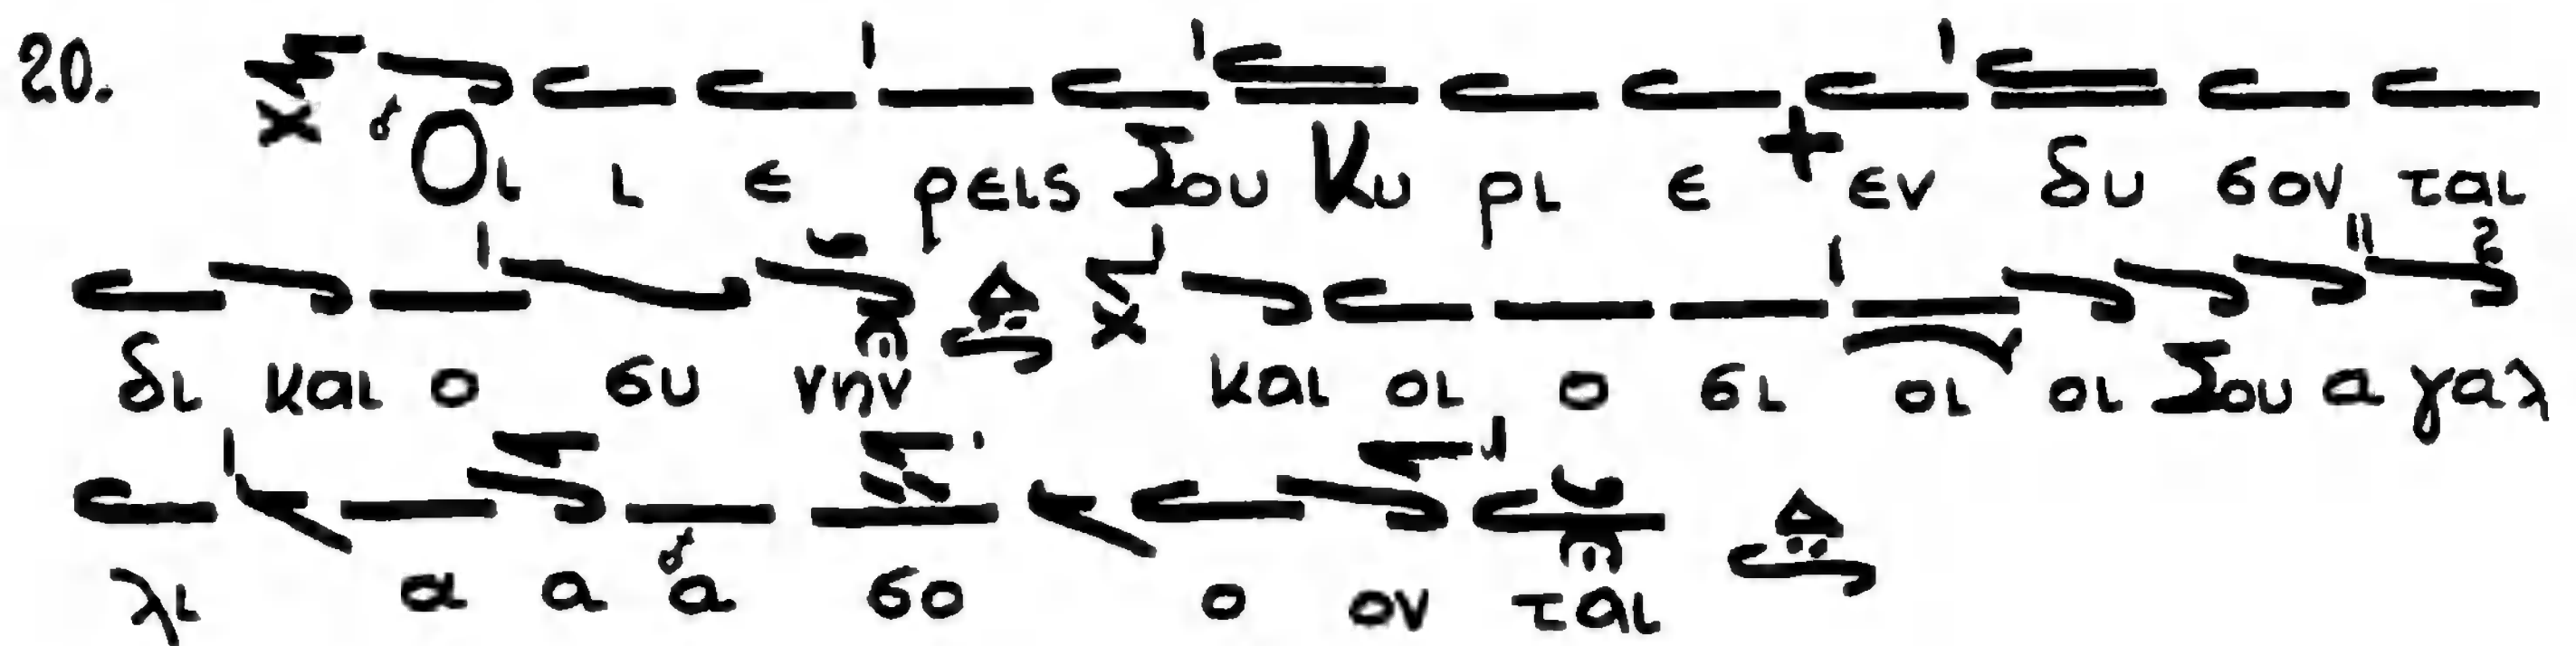 20. Οι ι ε ρεις Σου Κυ ρι ε + εν δυ σον ται
δι και ο συ νην Δ και οι ο σι οι οι Σου α γαλ
λι α α α σο ο ον ται Δ